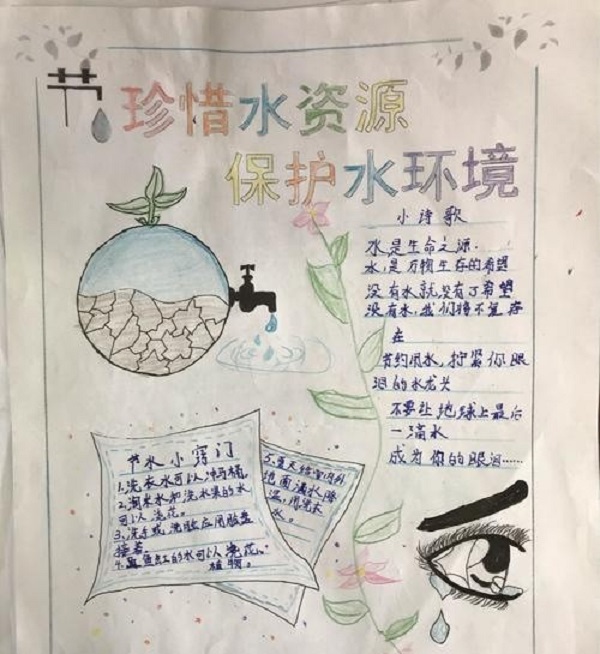 节
珍惜水资源
保护水环境
小诗歌
水是生命之源.
水,是万物生存的希望
没有水就没有了希望
没有水,我们将不复存
在
节约用水,拧紧你眼
泪的水龙头
不要让地球上最后
一滴水
成为你的眼泪……
节水小窍门
1.洗衣水可以冲马桶,
2.淘米水和洗水果的水
可以浇花。
3.洗手或洗脸应用脸盆
接着.
4.鱼缸的水可以浇花、
植物。
5.夏天给室内外
地面洒水降
温,用洗衣
水。